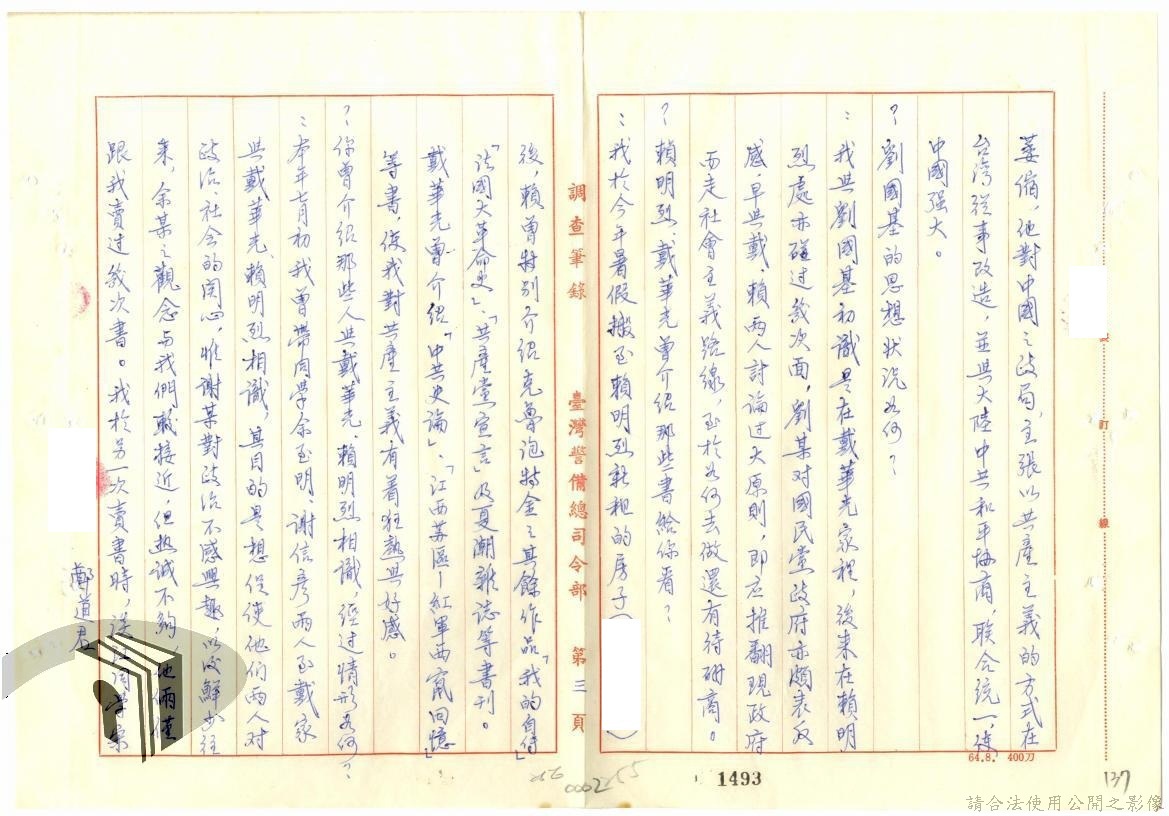 萎缩，他對中國之政局，主張以共產主義的方式在
台灣從事改造，並與大陸中共和平協商，联合統一，使
中國强大。
？劉國基的思想狀況為何？
：我與劉國基初識是在戴華光家裡，後來在賴明
烈處亦碰过幾次面，劉某对國民党政府亦頗表反
感，早與戴、賴两人討論过大原則，即应推翻現政府
而走社會主義路線，至於為何去做還有待研商。
？賴明烈、戴華光曾介紹那些書給你看？
：我於今年暑假搬至賴明烈新租的房子（
）
訂
線
64.8. 400刀
137
1493
0002255
256
調查筆錄 臺灣警備總司令部 第三頁
後，賴曾特别介紹克魯泡特金之其餘作品「我的自傳」
「法國大革命史」、「共產党宣言」及夏潮雜誌等書刊。
戴華光曾介紹「中共史論」、「江西苏區－紅軍西竄回憶」
等書，使我對共產主義有着狂熱與好感。
？你曾介紹那些人與戴華光、賴明烈相識，经过情形為何？
：本年七月初，我曾帶同學余至明、謝信彦两人至戴家
與戴華光、賴明烈相識，其目的是想促使他们两人对
政治、社会的関心，惟謝某對政治不感興趣，以後鮮少往
來，余某之觀念与我們較接近，但熱誠不夠，他倆僅
跟我賣过幾次書。我於另一次賣書時，
鄭道君
請合法使用公開之影像